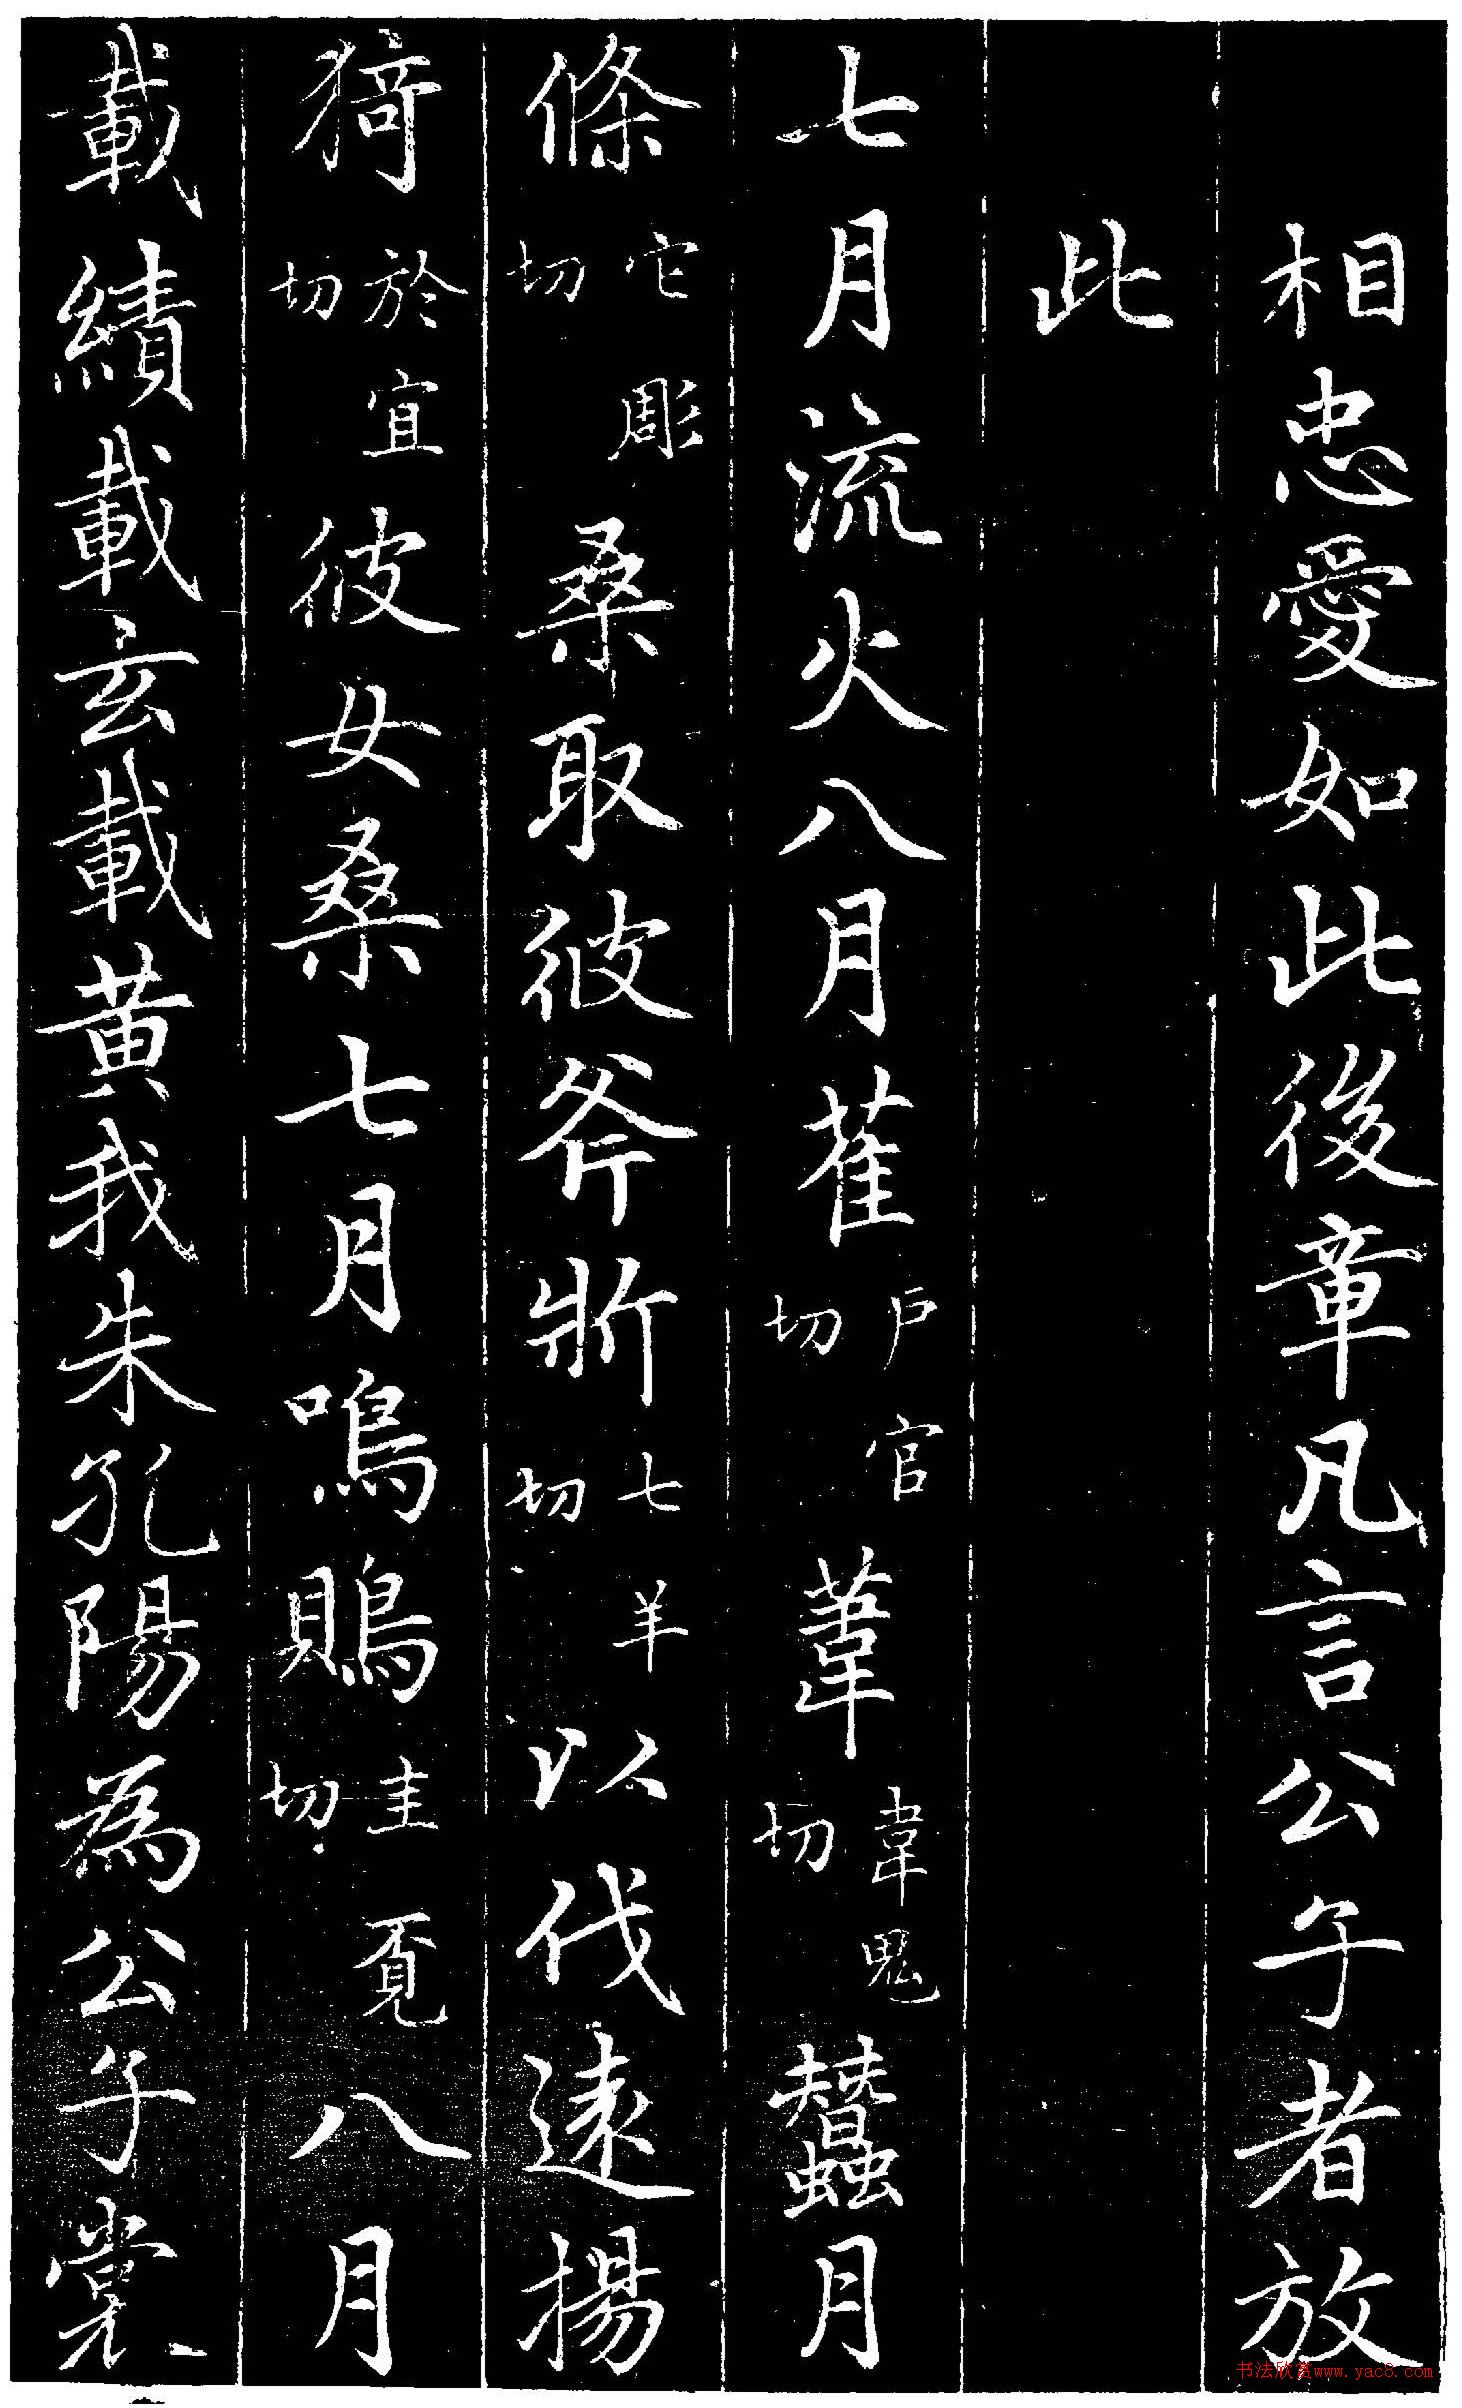 相忠愛如此後章凡言公子者放
此
七月流火八月萑戶官切葦韋鬼切蠶月
條它彫切桑取彼斧斨七羊切以伐遠揚
猗於宜切彼女桑七月鳴鵙圭覓切八月
載績載玄載黃我朱孔陽為公子裳
书法欣赏www.yac8.com